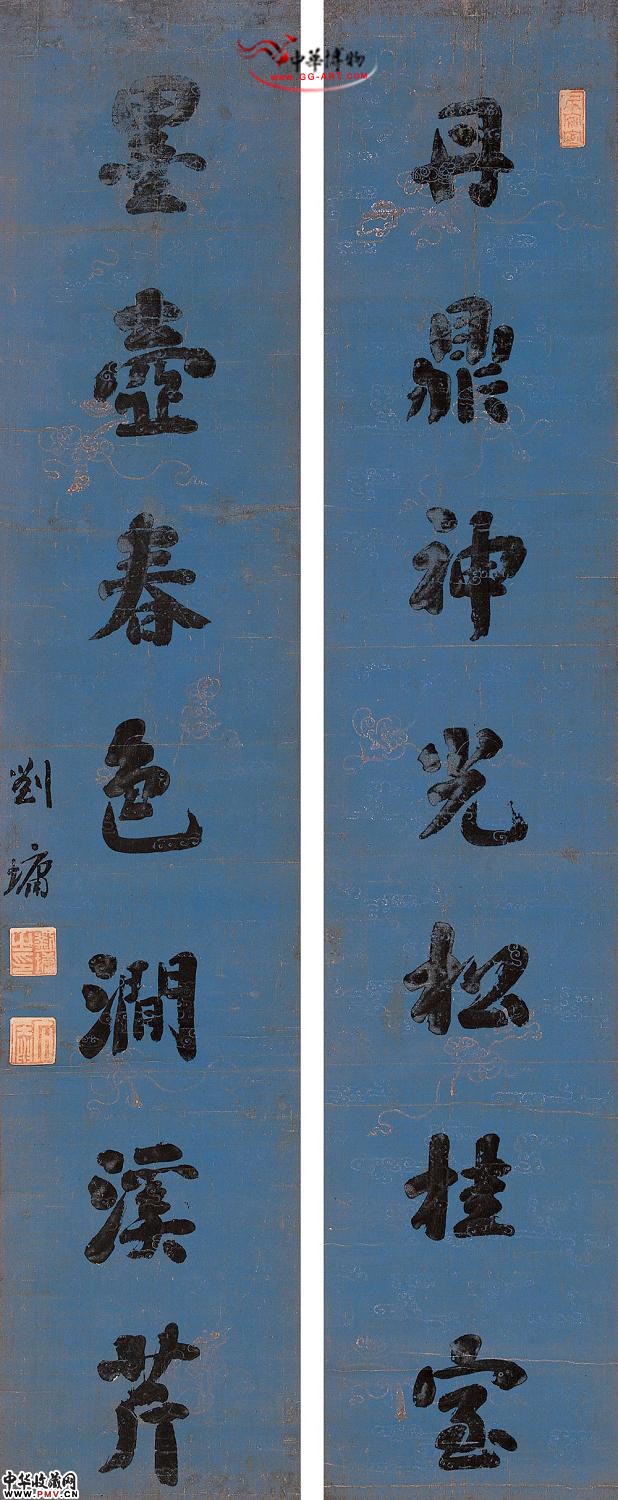 丹鼎神光松桂室
墨壺春色澗溪芹
劉墉
中华博物
www.GG-ART.com
中华收藏网
www.PMV.CN